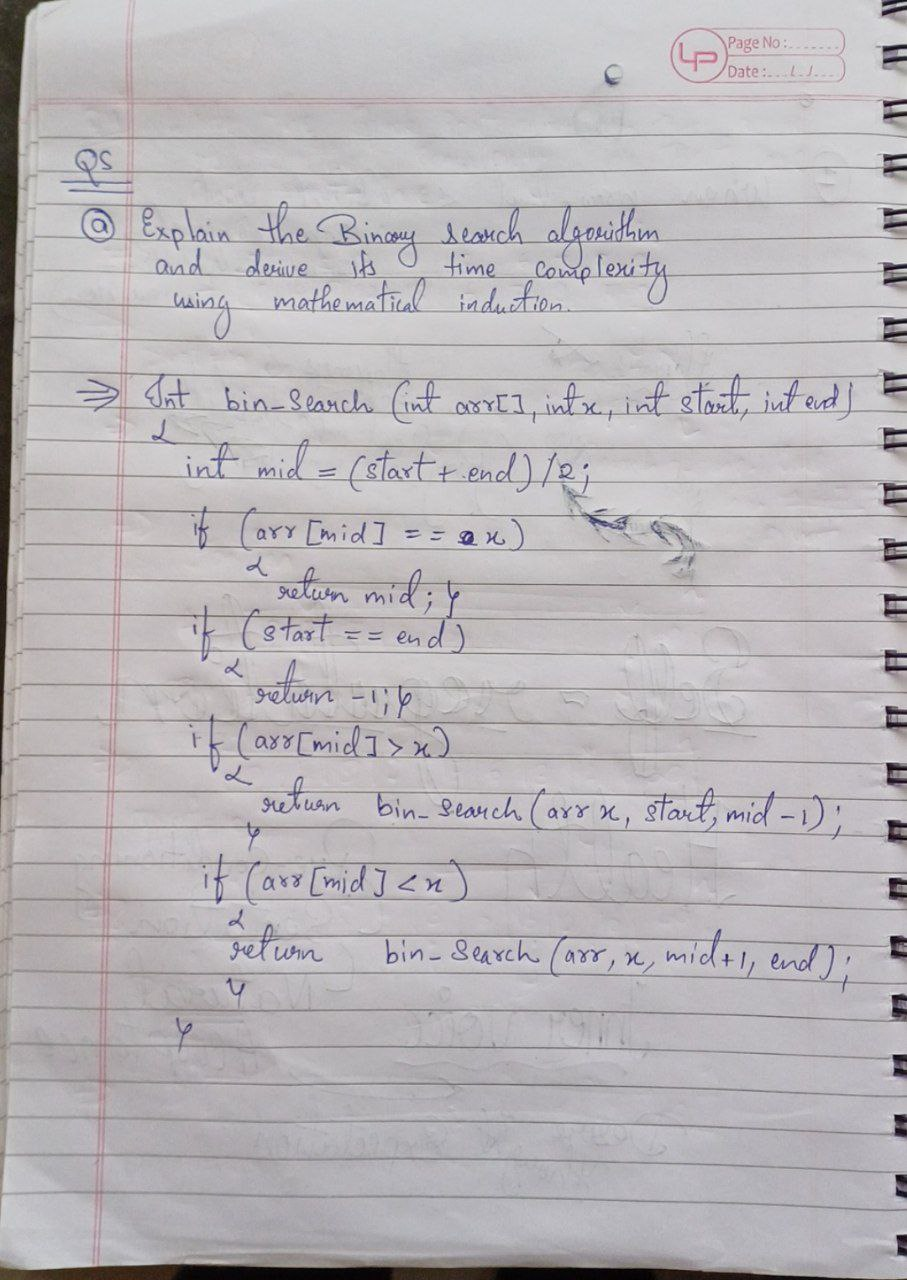 LP Page No :.......
Date :.... / /....
Q5
(a) Explain the Binary search algorithm
and derive its time complexity
using mathematical induction.
⇒ Int bin-Search (int arr[], int x, int start, int end)
{
int mid = (start + end) /2;
if (arr [mid] == x)
{
return mid; }
if (start == end)
{
return -1; }
if (arr[mid] > x)
{
return bin-search (arr x, start, mid -1);
}
if (arr [mid] < x)
{
return bin-Search (arr, x, mid+1, end);
}
}